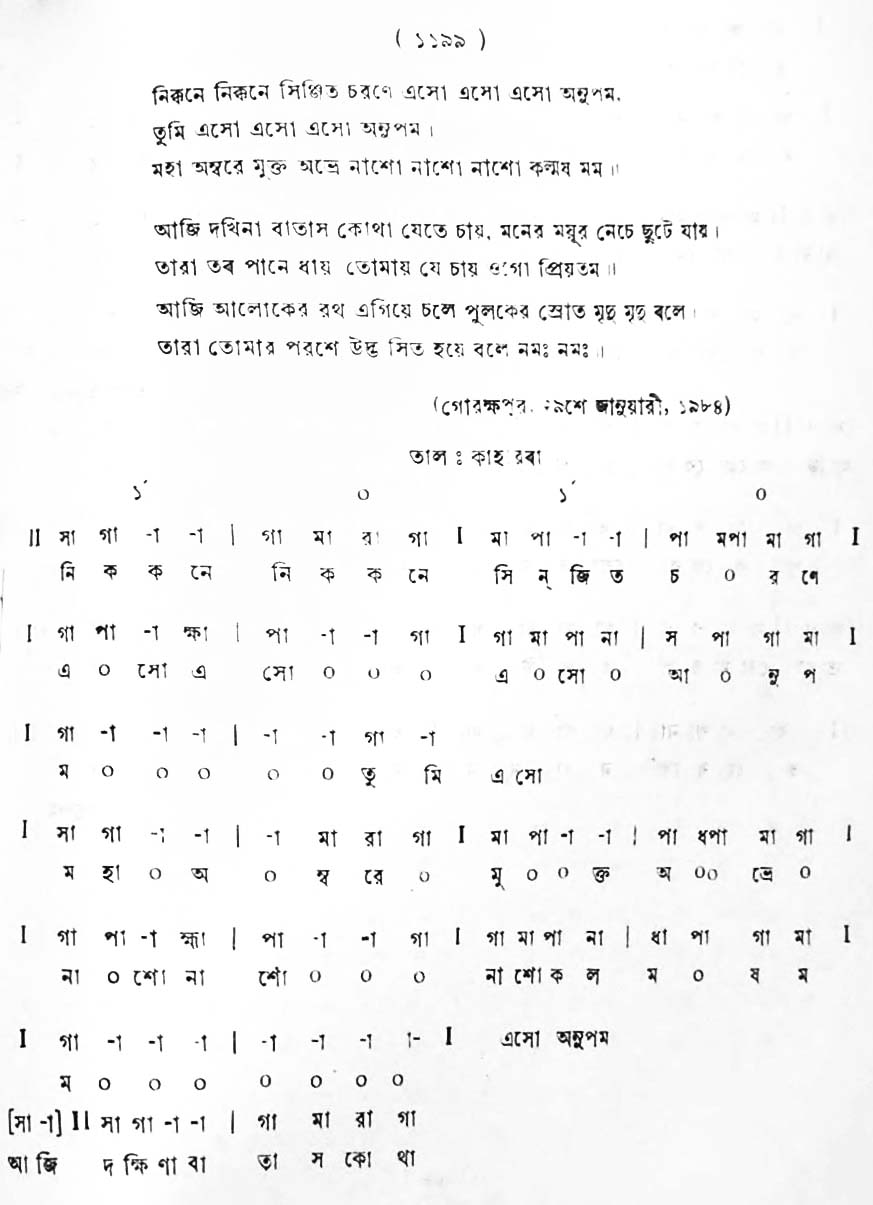 ( ১১৯৯ )
নিক্কনে নিক্কনে সিঞ্জিত চরণে এসো এসো এসো অনুপম,
তুমি এসো এসো এসো অনুপম ।
মহা অম্বরে মুক্ত অভ্রে নাশো নাশো নাশো কল্মষ মম ॥
আজি দখিনা বাতাস কোথা যেতে চায়, মনের ময়ূর নেচে ছুটে যায় ।
তারা তব পানে ধায় তোমায় যে চায় ওগো প্রিয়তম ॥
আজি আলোকের রথ এগিয়ে চলে পুলকের স্রোত মৃদু মৃদু বলে ।
তারা তোমার পরশে উদ্ভাসিত হয়ে বলে নমঃ নমঃ ।
(গোরক্ষপুর, জানুয়ারী, ১৯৮৪)
তাল ঃ কাহারবা
১´ ০ ১´ ০
II সা গা -া -া | গা মা রা গা I মা পা -া -া | পা মপা মা গা I
নি ক ক নে নি ক ক নে সি ন্ জি ত চ ০ র ণে
I গা পা -া ক্ষা | পা -া -া গা I গা মা পা না | স পা গা মা I
এ ০ সো এ সো ০ ০ ০ এ ০ সো ০ আ ০ নু প
I গা -া -া -া | -া -া গা -া
ম ০ ০ ০ ০ ০ তু মি এ সো
I সা গা -া -া | -া মা রা গা I মা পা -া -া | পা ধপা মা গা I
ম হা ০ অ ০ ম্ব রে ০ মু ০ ০ ক্ত অ ০০ ভ্রে ০
I গা পা -া হ্মা | পা -া -া গা I গা মা পা না | ধা পা গা মা I
না ০ শো না শো ০ ০ ০ না শো ক ল ম ০ ষ ম
I গা -া -া -া | -া -া -া া- I এসো অনুপম
ম ০ ০ ০ ০ ০ ০ ০
[সা -া] II সা গা -া -া | গা মা রা গা
আ জি দ ক্ষি ণা বা তা স কো থা